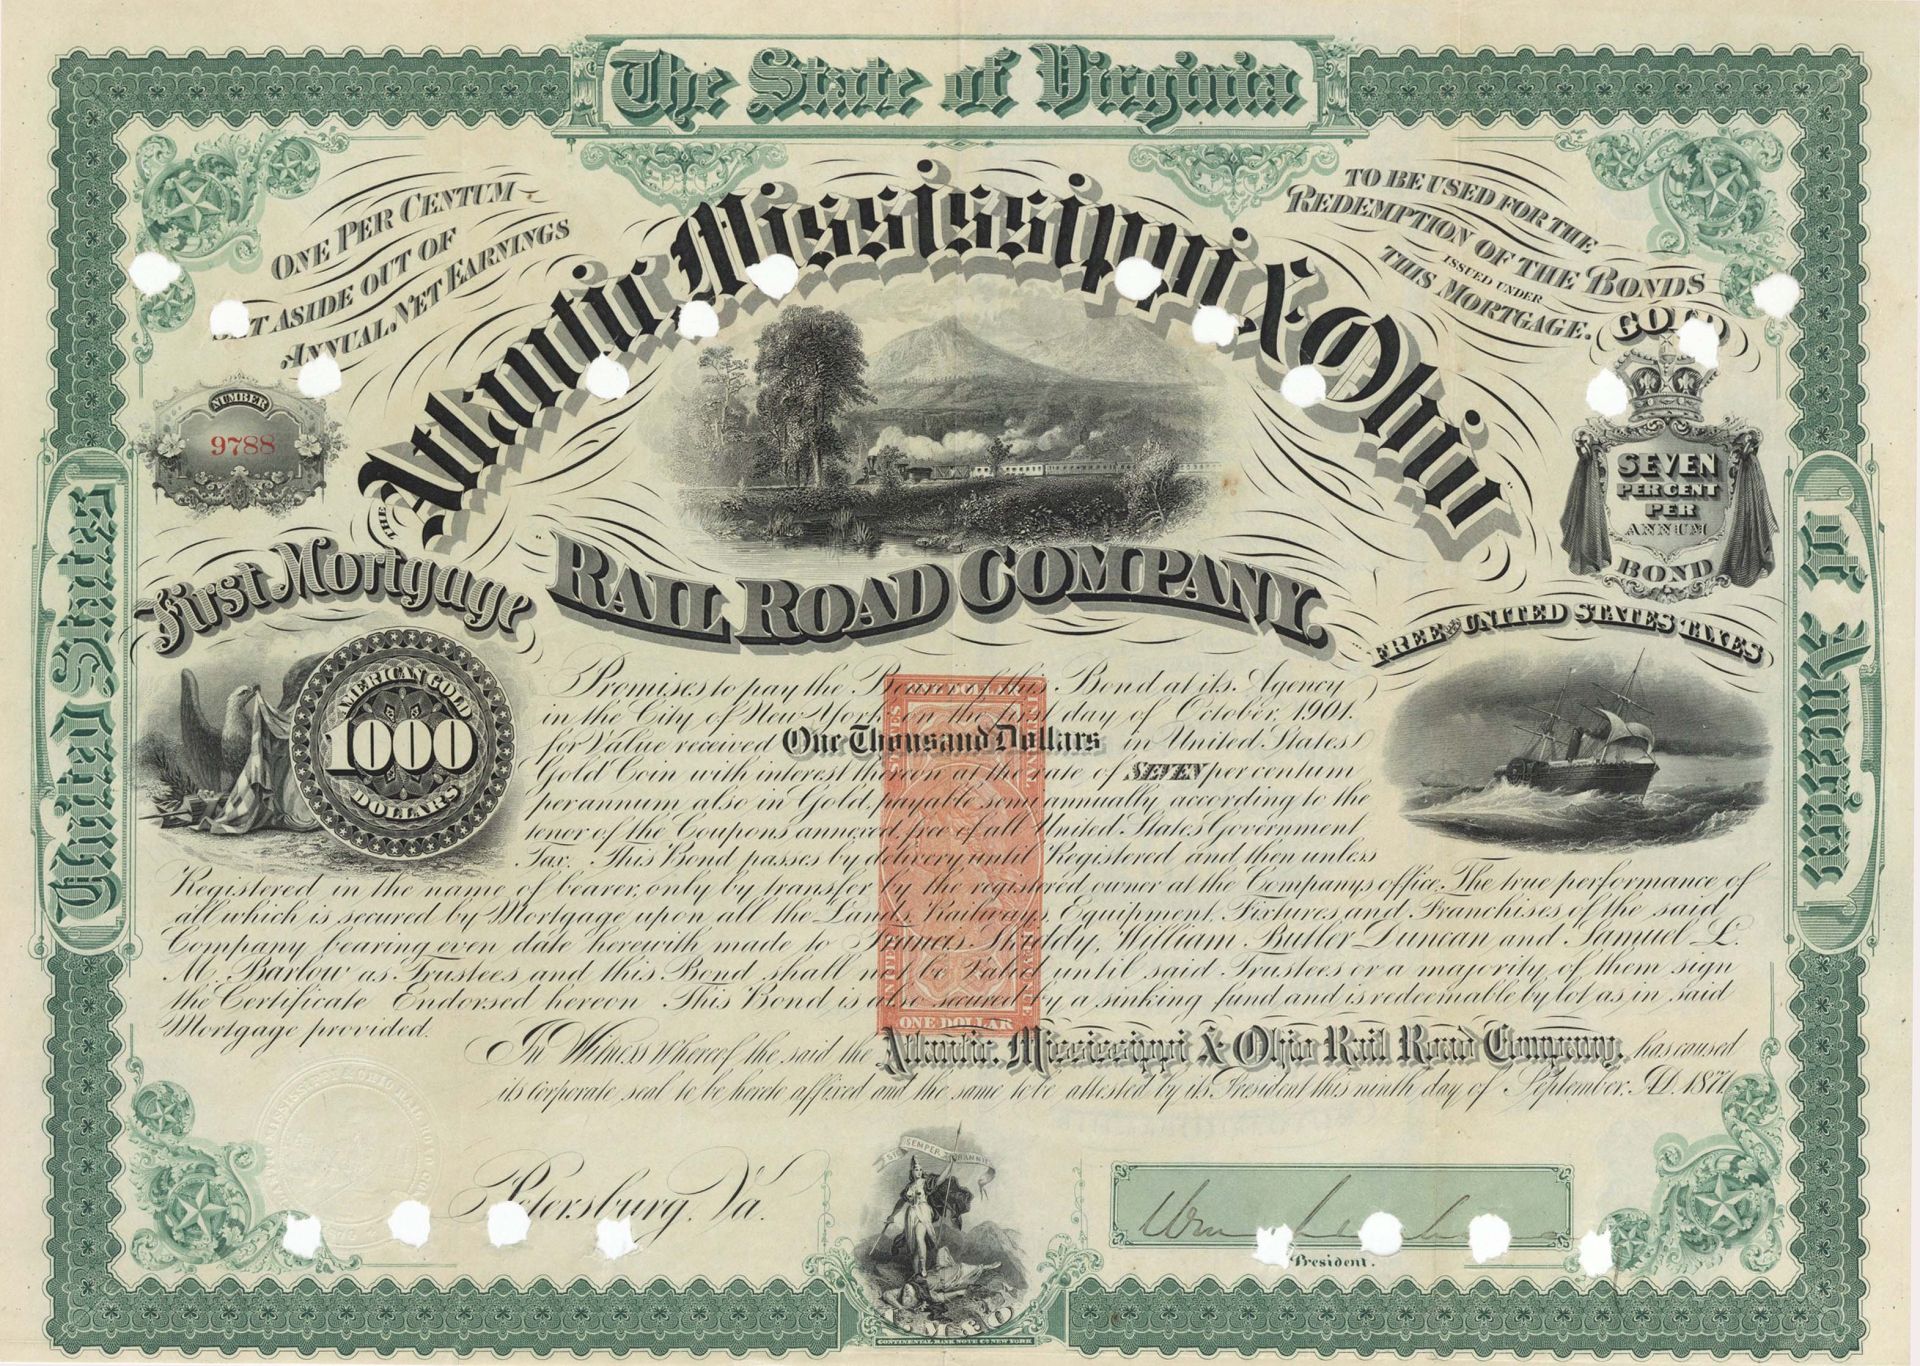 The State of Virginia
ONE PER CENTUM
SET ASIDE OUT OF
ANNUAL NET EARNINGS
TO BE USED FOR THE
REDEMPTION OF THE BONDS
ISSUED UNDER
THIS MORTGAGE.
THE Atlantic, Mississippi & Ohio
RAIL ROAD COMPANY.
NUMBER
9788
GOLD
SEVEN
PER CENT
PER
ANNUM
BOND
First Mortgage
FREE UNITED STATES TAXES
United States
of America
AMERICAN GOLD
1000
DOLLARS
Promises to pay the Bearer of this Bond at its Agency
in the City of New York on the first day of October, 1901.
for Value received One Thousand Dollars in United States
Gold Coin with interest thereon at the rate of SEVEN per centum
per annum also in Gold, payable semi annually according to the
tenor of the Coupons annexed, free of all United States Government
Tax. This Bond passes by delivery until Registered and then unless
Registered in the name of bearer, only by transfer by the registered owner at the Companys office. The true performance of
all which is secured by Mortgage upon all the Lands, Railways, Equipment, Fixtures, and Franchises of the said
Company bearing even date herewith made to Francis Skiddy, William Butler Duncan and Samuel L.
M. Barlow as Trustees and this Bond shall not be Valid until said Trustees or a majority of them sign
the Certificate Endorsed hereon This Bond is also secured by a sinking fund and is redeemable by lot as in said
Mortgage provided.
ONE DOLLAR
In Witness Whereof the said the Atlantic, Mississippi & Ohio Rail Road Company, has caused
its corporate seal to be hereto affixed and the same to be attested by its President this ninth day of September, AD. 1871.
Petersburg, Va.
SIC SEMPER TYRANNIS
Wm
President.
CONTINENTAL BANK NOTE Co. NEW YORK